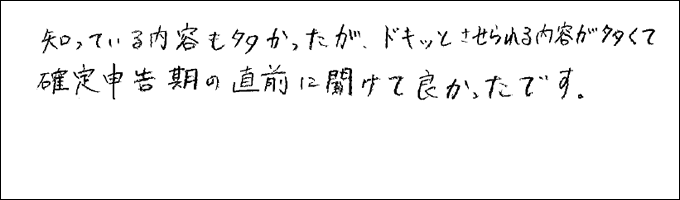 知っている内容も多かったが、ドキッとさせられる内容が多くて
確定申告期の直前に聞けて良かったです。